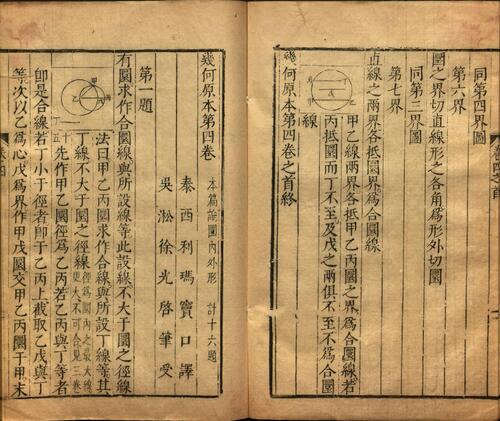 同第四界圖
第六界
圜之界切直線形之各角爲形外切圜
同第三界圖
第七界
直線之兩界各抵圜界爲合圜線
甲乙線兩界各抵甲乙丙圜之界爲合圜線若
丙抵圜而丁不至及戊之兩俱不至不爲合圜
線
幾何原本第四卷之首終
幾何原本第四卷 本篇論圜內外形 計十六題
泰西利瑪竇口譯
吳淞徐光啓筆受
第一題
有圜求作合圜線與所設線等此設線不大于圜之徑線
法曰甲乙丙圜求作合線與所設丁線等其
丁線不大于圜之徑線 徑爲圜內之最大線更大不可合見三卷十五
先作甲乙圜徑爲乙丙若乙丙與丁等者
卽是合線若丁小于徑者卽于乙丙上截取乙戊與丁
等次以乙爲心戊爲界作甲戊圜交甲乙丙圜于甲末